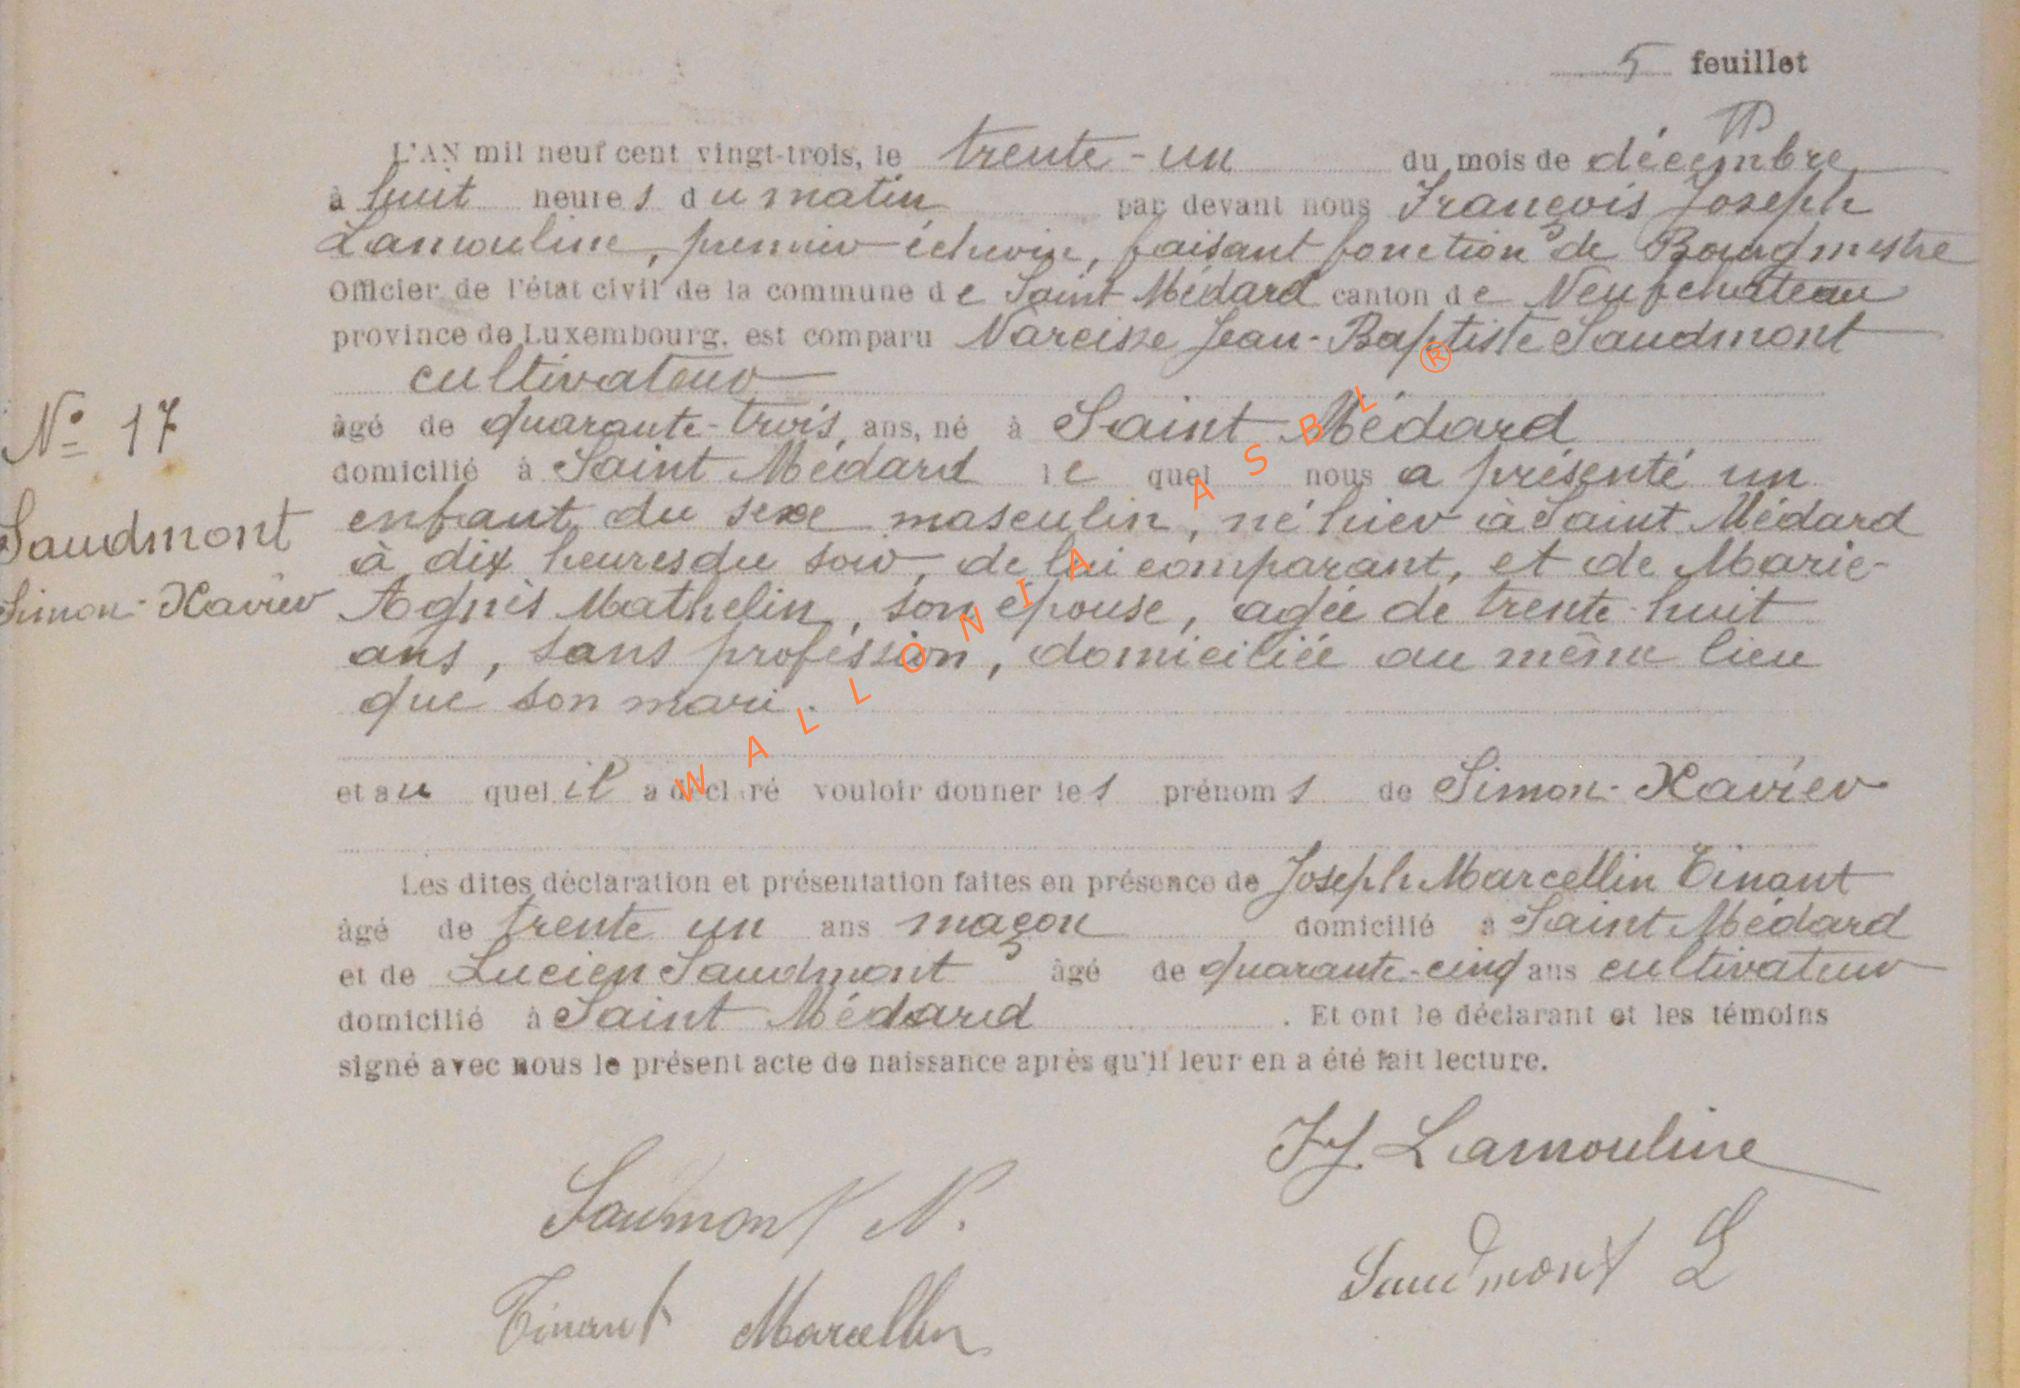 5 feuillet
L'AN mil neuf cent vingt-trois, le trente-un du mois de décembre
à huit heures du matin par devant nous François Joseph
Lamouline, premier échevin, faisant fonction de Bourgmestre
Officier de l'état civil de la commune de Saint Médard canton de Neufchateau
province de Luxembourg, est comparu Narcisse Jean-Baptiste Saudmont
cultivateur
âgé de quarante-trois ans, né à Saint Médard
domicilié à Saint Médard le quel nous a présenté un
enfant du sexe masculin, né hier à Saint Médard
à dix heures du soir, de lui comparant, et de Marie-
Agnès Mathelin, son épouse, agée de trente-huit
ans, sans profession, domiciliée au même lieu
que son mari.
et au quel il a déclaré vouloir donner les prénoms de Simon-Xavier
Les dites déclaration et présentation faites en présence de Joseph Marcellin Tinant
âgé de trente un ans maçon domicilié à Saint Médard
et de Lucien Saudmont âgé de quarante-cinq ans cultivateur
domicilié à Saint Médard. Et ont le déclarant et les témoins
signé avec nous le présent acte de naissance après qu'il leur en a été fait lecture.
N° 17
Saudmont
Simon-Xavier
FJ. Lamouline
Saudmont N.
Saudmont L
Tinant Marcellin
WALLONIA ASBL ®